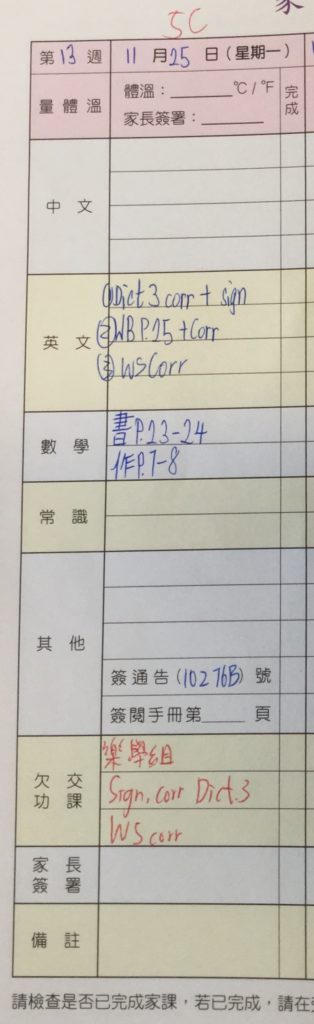 5C
第13週 11月25日(星期一)
量體溫 體溫：______°C/°F 完成
家長簽署：______
中文
英文 ①Dict 3 corr + sign
②WB P.25 + Corr
③WS Corr
數學 書P.23-24
作P.7-8
常識
其他
簽通告(10276B)號
簽閱手冊第____頁
欠交功課 樂學組
Sign, corr Dict.3
WS corr
家長簽署
備註
請檢查是否已完成家課，若已完成，請在